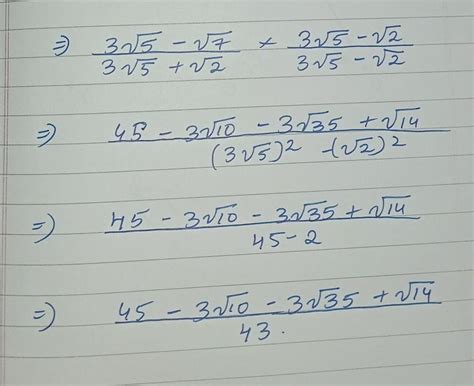 ⇒) (3√5 - √7)/(3√5 + √2) × (3√5 - √2)/(3√5 - √2)
⇒) (45 - 3√10 - 3√35 + √14)/((3√5)² - (√2)²)
=) (45 - 3√10 - 3√35 + √14)/(45 - 2)
=) (45 - 3√10 - 3√35 + √14)/43.